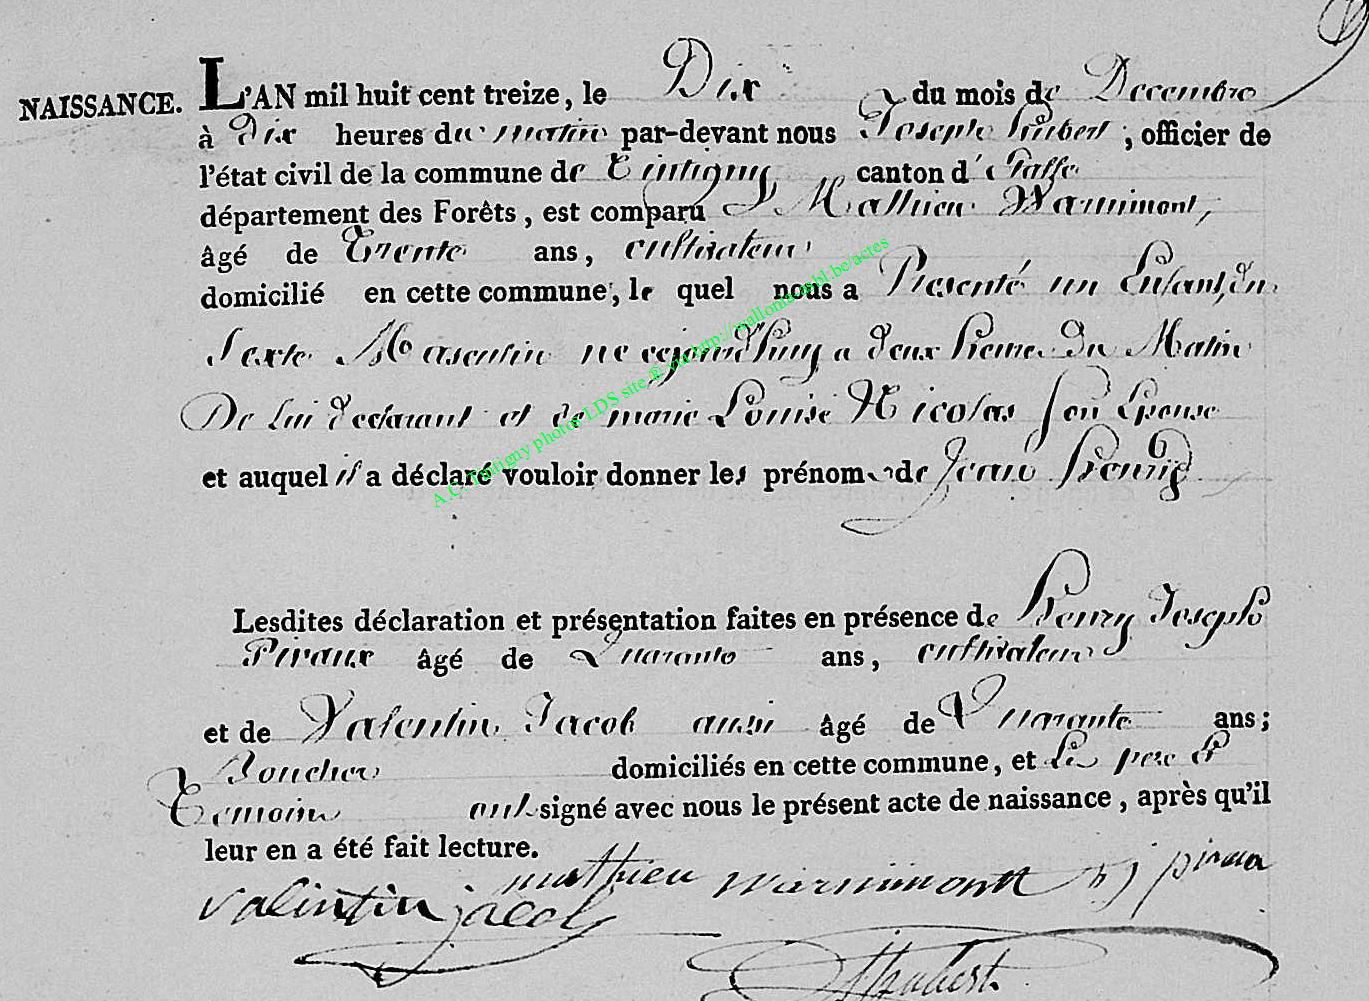 NAISSANCE. L'AN mil huit cent treize, le Dix du mois de Decembre
à Dix heures du matin par-devant nous Joseph hubert, officier de
l'état civil de la commune de Tintigny canton d'Etalle
département des Forêts, est comparu Mathieu Warnimont,
âgé de Trente ans, cultivateur
domicilié en cette commune, le quel nous a Presenté un Enfant, du
Sexte Masculin né cejourd'huy a deux heures du Matin
De lui declarant et de marie Louise Nicolas son Epouse
et auquel il a déclaré vouloir donner les prénoms de Jean henry
Lesdites déclaration et présentation faites en présence de henry Joseph
Piraux âgé de Quarante ans, cultivateur
et de Valentin Jacob aussi âgé de Quarante ans;
Boucher domiciliés en cette commune, et Les pere et
Temoins ont signé avec nous le présent acte de naissance, après qu'il
leur en a été fait lecture.
mathieu warnimont hj piraux
valintin jacob
hubert.
A.C. Tintigny photos LDS site @ via http://wallonia.mbl.be/actes